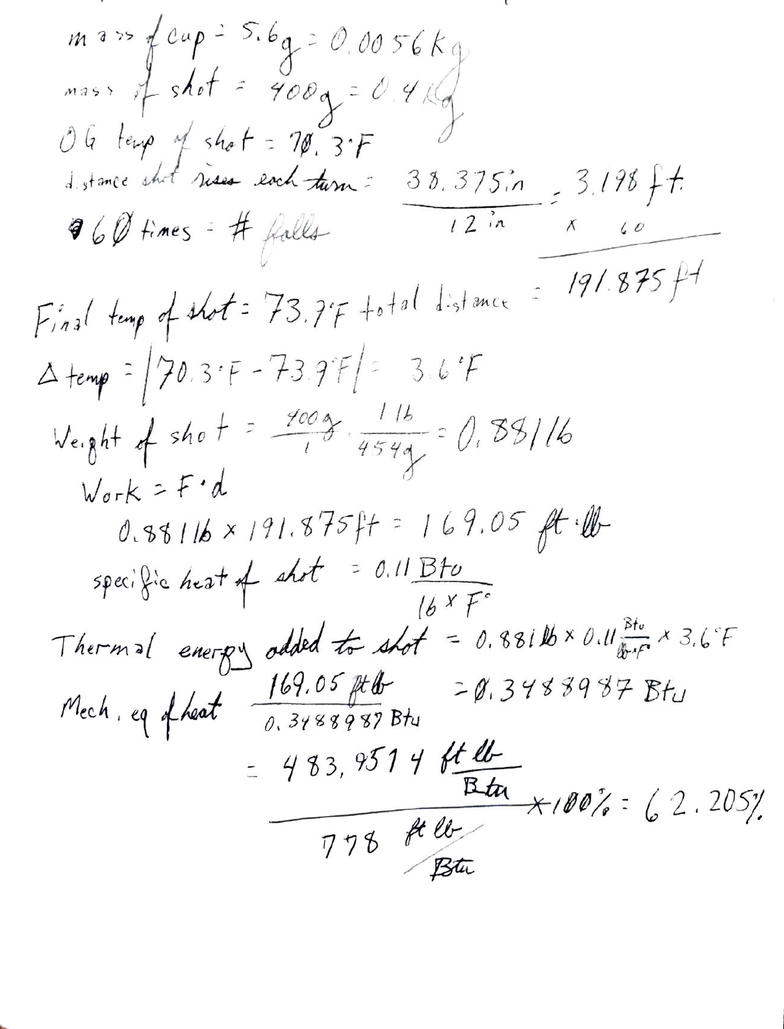 mass of cup = 5.6g = 0.0056Kg
mass of shot = 400g = 0.4 kg
OG temp of shot = 70.3°F
distance shot rises each turn = 38.375in / 12 in = 3.198 ft.
60 times = # falls x 60
Final temp of shot = 73.9°F total distance = 191.875 ft
Δ temp = |70.3°F - 73.9°F| = 3.6°F
Weight of shot = 400g / 1 · 1 lb / 454g = 0.881 lb
Work = F·d
0.881 lb x 191.875ft = 169.05 ft·lb
specific heat of shot = 0.11 Btu / lb x F°
Thermal energy added to shot = 0.881 lb x 0.11 Btu / lb·F° x 3.6°F
= 0.3488987 Btu
Mech. eq of heat 169.05 ft lb / 0.3488987 Btu
= 483,9514 ft lb / Btu
x 100% = 62.205%
778 ft lb / Btu